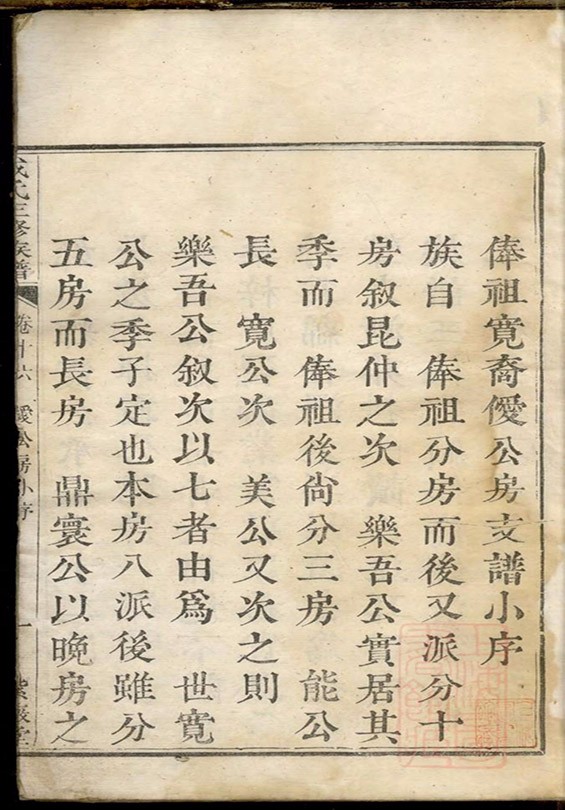 俸祖寬裔僾公房支譜小序
族自　俸祖分房而後又派分十
房叙昆仲之次　樂吾公實居其
季而　俸祖後尙分三房　能公
長　寬公次　美公又次之則
樂吾公叙次以七者由爲　世寬
公之季子定也本房八派後雖分
五房而長房　鼎寰公以晚房之
氏三修族譜　卷十六　僾公房小序　一